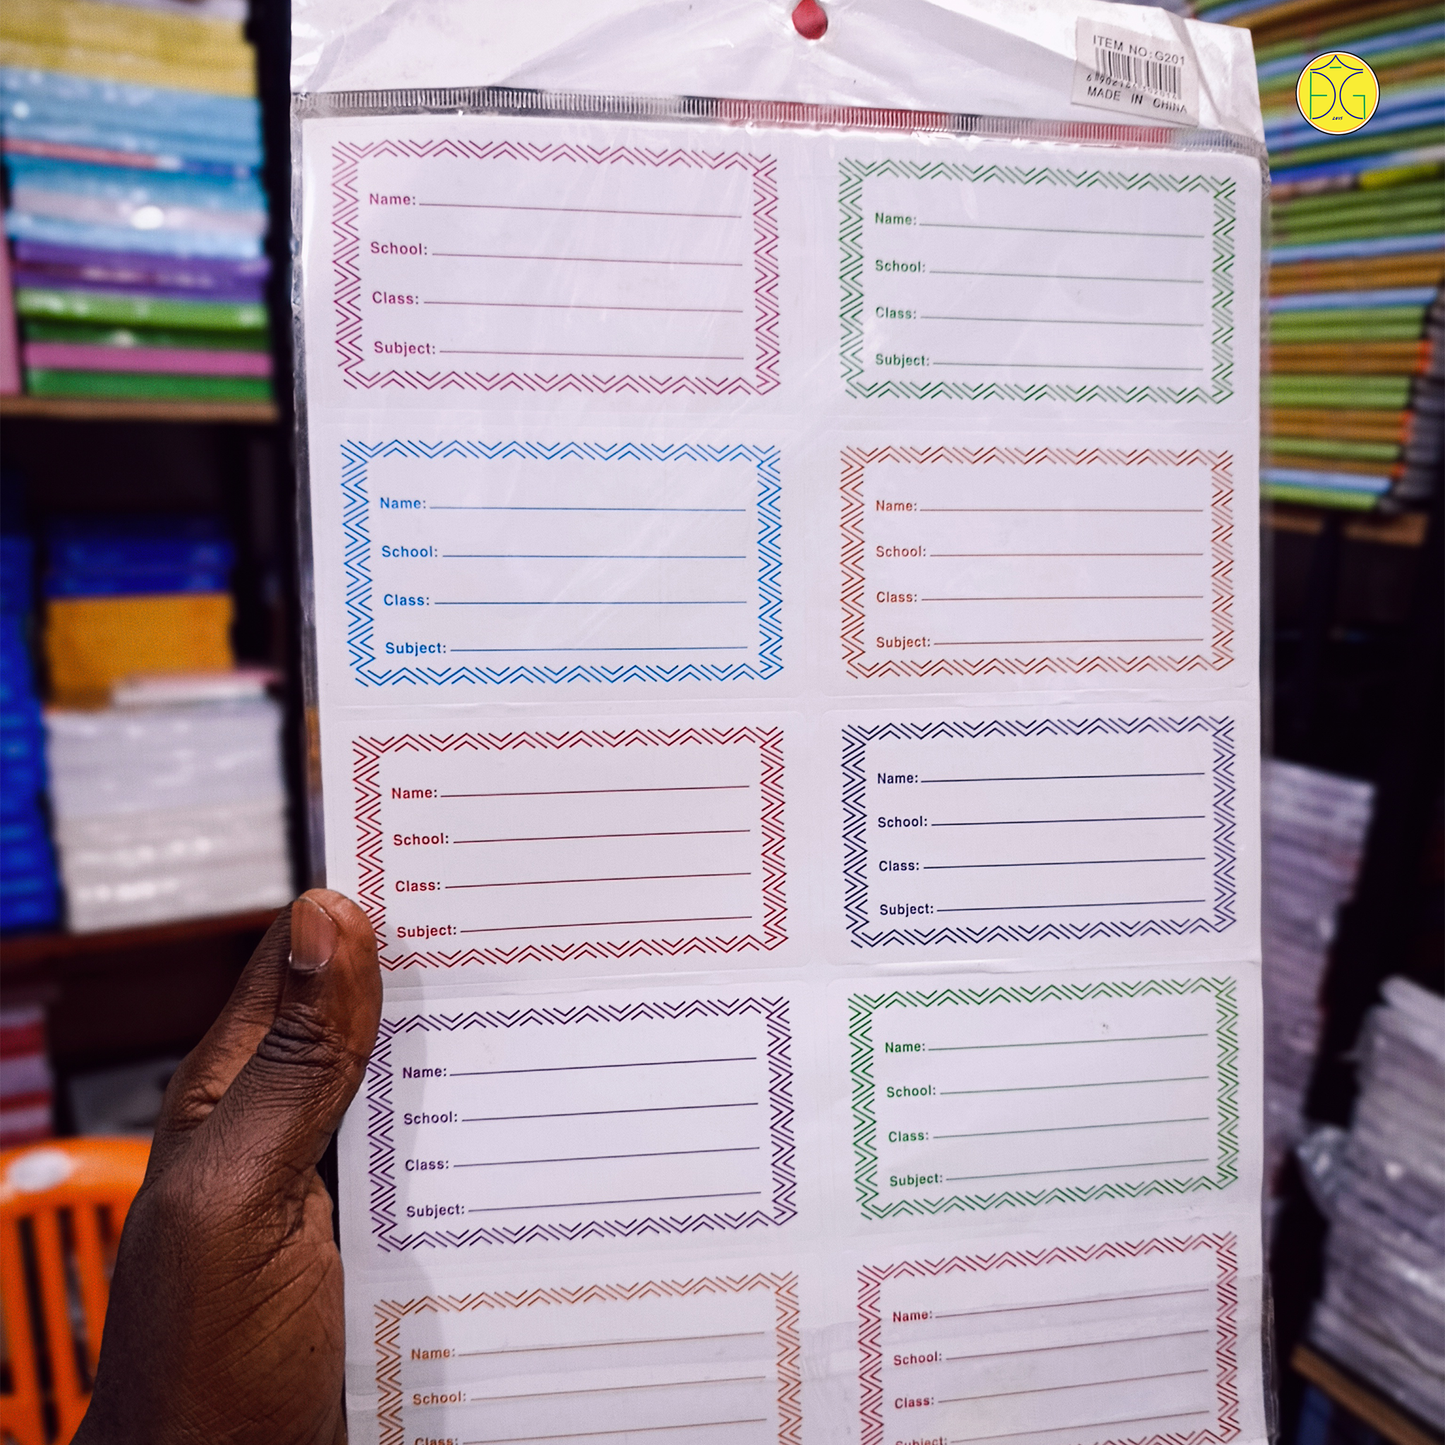 ITEM NO:G201
MADE IN CHINA
EG
Name:
School:
Class:
Subject:
Name:
School:
Class:
Subject:
Name:
School:
Class:
Subject:
Name:
School:
Class:
Subject:
Name:
School:
Class:
Subject:
Name:
School:
Class:
Subject:
Name:
School:
Class:
Subject:
Name:
School:
Class:
Subject:
Name:
School:
Class:
Name:
School:
Class:
Subject: